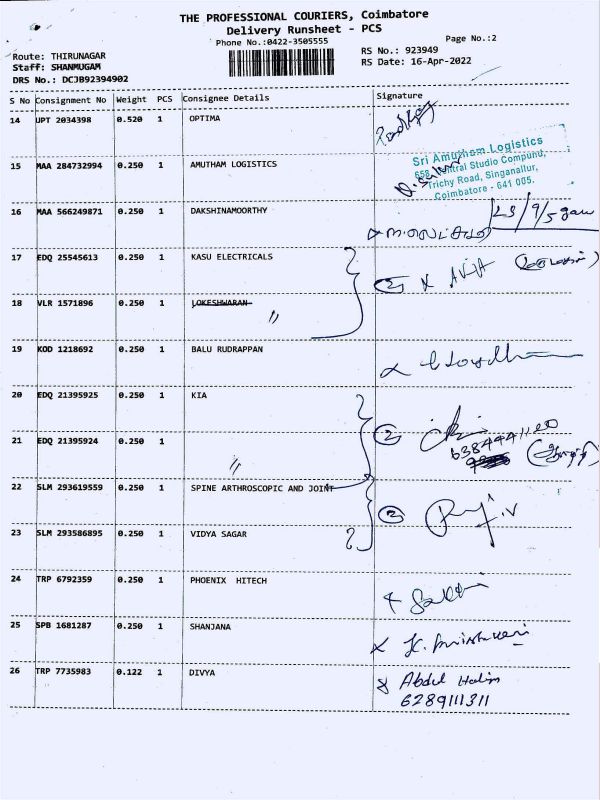 THE PROFESSIONAL COURIERS, Coimbatore
Delivery Runsheet - PCS
Phone No.:0422-3505555
Page No.:2
Route: THIRUNAGAR
RS No.: 923949
Staff: SHANMUGAM
RS Date: 16-Apr-2022
DRS No.: DCJB92394902
S No Consignment No Weight PCS Consignee Details Signature
14 UPT 2034398 0.520 1 OPTIMA
Sri Amutham Logistics
Studio Compund,
Trichy Road, Singanallur,
Coimbatore - 641 005.
15 MAA 284732994 0.250 1 AMUTHAM LOGISTICS
16 MAA 566249871 0.250 1 DAKSHINAMOORTHY
17 EDQ 25545613 0.250 1 KASU ELECTRICALS
18 VLR 1571896 0.250 1 LOKESHWARAN
19 KOD 1218692 0.250 1 BALU RUDRAPPAN
20 EDQ 21395925 0.250 1 KIA
21 EDQ 21395924 0.250 1
22 SLM 293619559 0.250 1 SPINE ARTHROSCOPIC AND JOINT
23 SLM 293586895 0.250 1 VIDYA SAGAR
24 TRP 6792359 0.250 1 PHOENIX HITECH
25 SPB 1681287 0.250 1 SHANJANA
26 TRP 7735983 0.122 1 DIVYA Abdul
6289111311